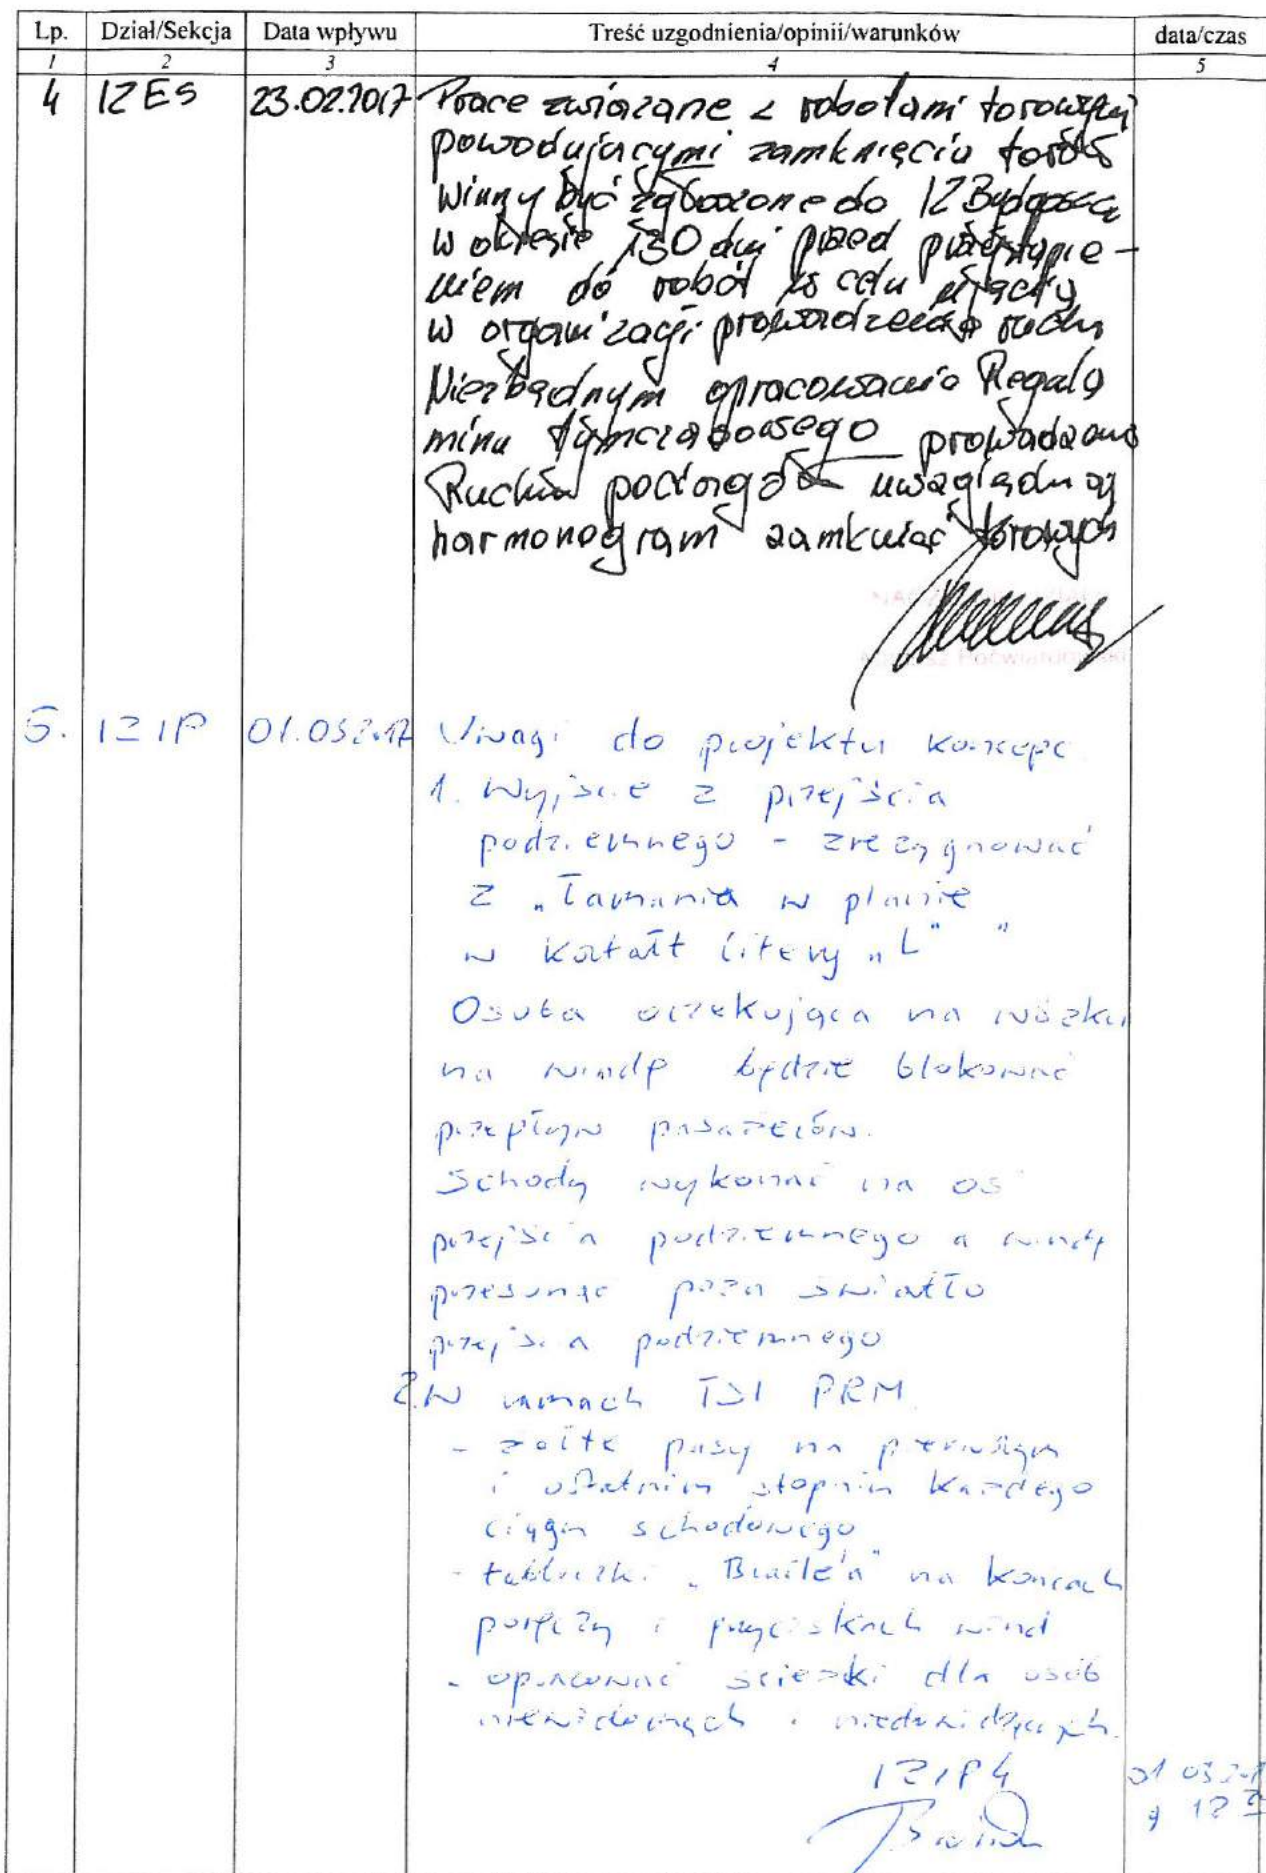 Lp. Dział/Sekcja Data wpływu Treść uzgodnienia/opinii/warunków data/czas
1 2 3 4 5
4 IZES 23.02.2017 Prace związane z robotami torowymi
powodującymi zamknięcia torów
winny być zgłoszone do IZ Bydgoszcz
w okresie 130 dni przed przystąpie-
niem do robót w celu
w organizacji prowadzenia ruchu
Niezbędnym opracowanie Regula
minu tymczasowego prowadzenia
Ruchu pociągów uwzględn
harmonogram zamknięć torowych
5. IZIP 01.03.2017 Uwagi do projektu koncepc.
1. Wyjście z przejścia
podziemnego - zrezygnować
z „łamania w planie
w kształt litery „L" "
Osoba oczekująca na wózku
na windę będzie blokować
przepływ pasażerów.
Schody wykonać na oś
przejścia podziemnego a windę
przesunąć poza światło
przejścia podziemnego
2. W ramach TSI PRM
- żółte pasy na pierwszym
i ostatnim stopniu każdego
ciągu schodowego
- tabliczki „Braile'a" na końcach
poręczy i przyciskach wind
- opracować ścieżki dla osób
niewidomych i niedowidzących.
IZIP4 01 03 2017
g 12